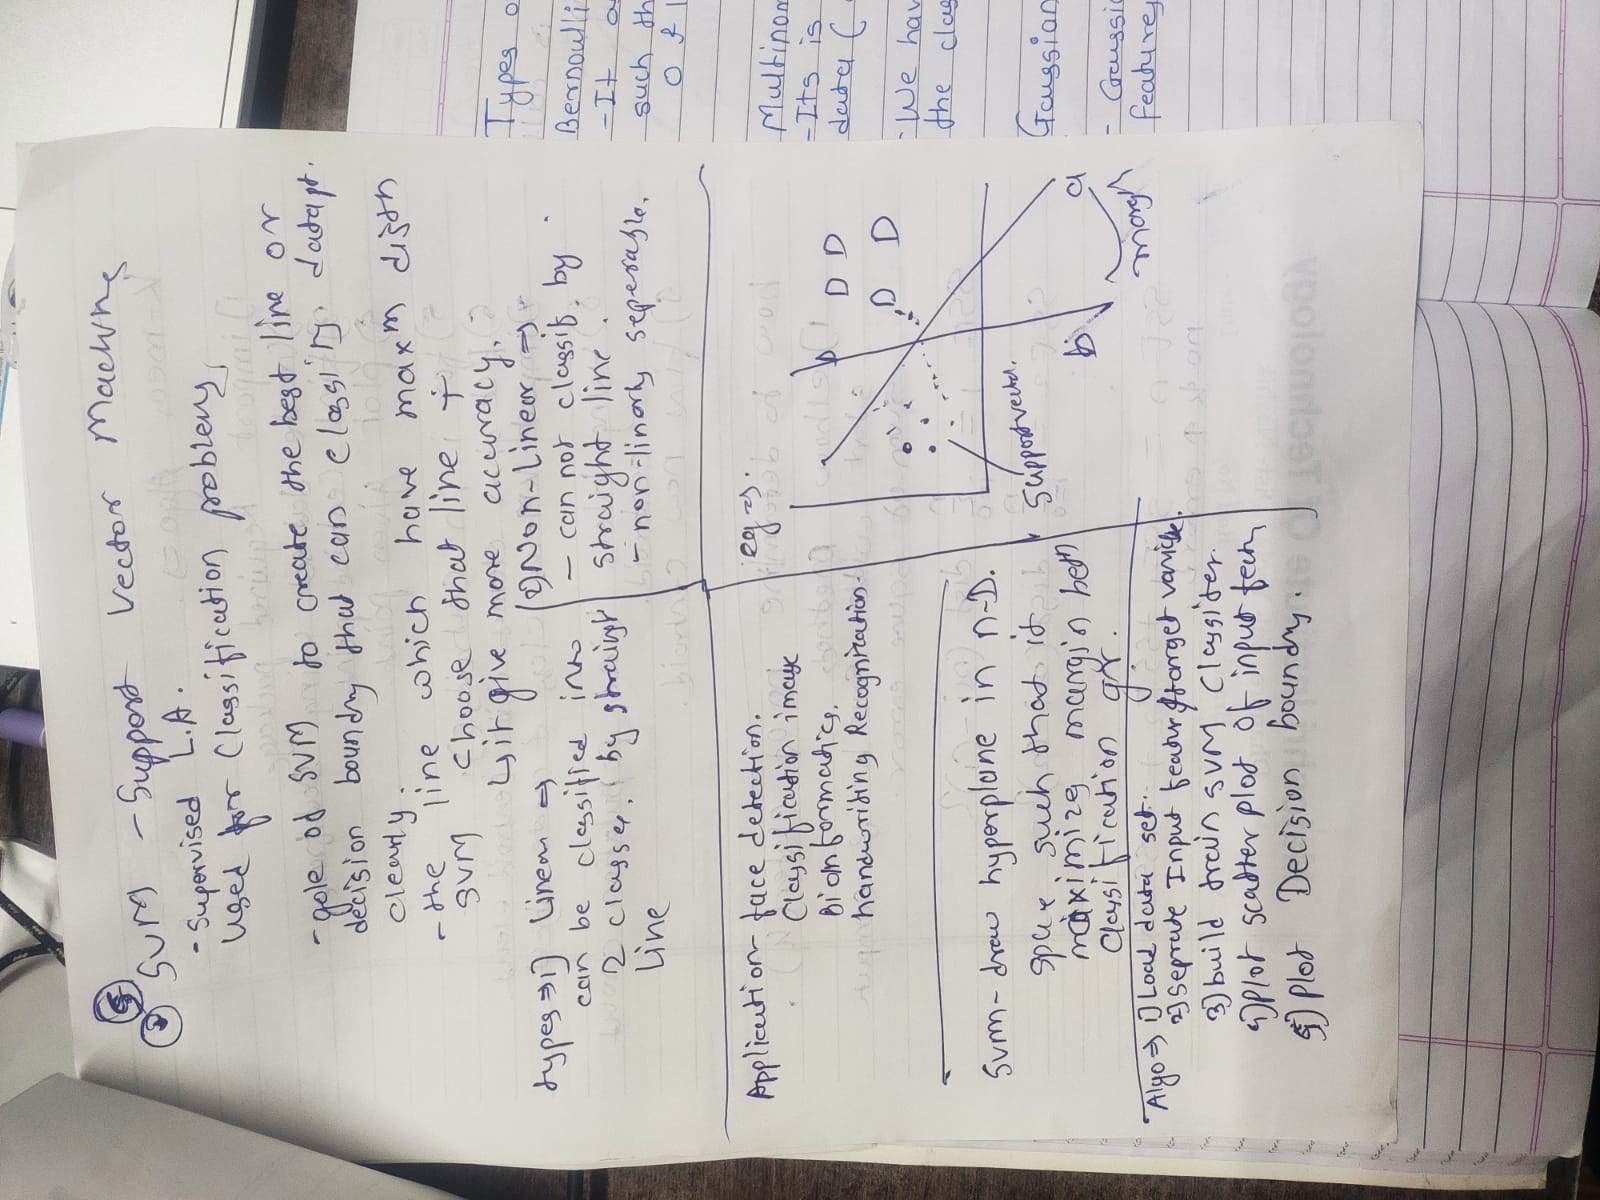 SVM - Support vector Machine
- Supervised L.A.
used for Classification problems,
- gole of SVM to create the best line or
decision boundry that can classify datapt.
clearly.
- the line which have maxm distn
SVM choose that line +
it give more accuracy.
types ⇒ 1) Linear ⇒
can be classified into
2 classes. by straight
Line
2) Non-Linear ⇒
- can not classif. by
straight line.
- non-linarly seperable.
Application - face detection.
Classification image
Bioinformatics.
handwriting Recognization.
eg ⇒
D D
D D
b
a
Support vector.
SVM - draw hyporplane in n-D.
space such that it
maximizg margin betn
Classification gr.
Algo ⇒ 1) Load data set.
2) Seprate Input featur & tanget varible.
3) build train SVM Classifier
4) plot scatter plot of input featur
5) plot Decision boundry.
Types o
Bernoulli
- It
such th
0 & 1
Multinom
- Its is
data (
- We hav
the clas
Gaussian
- Gaussia
features
Technology